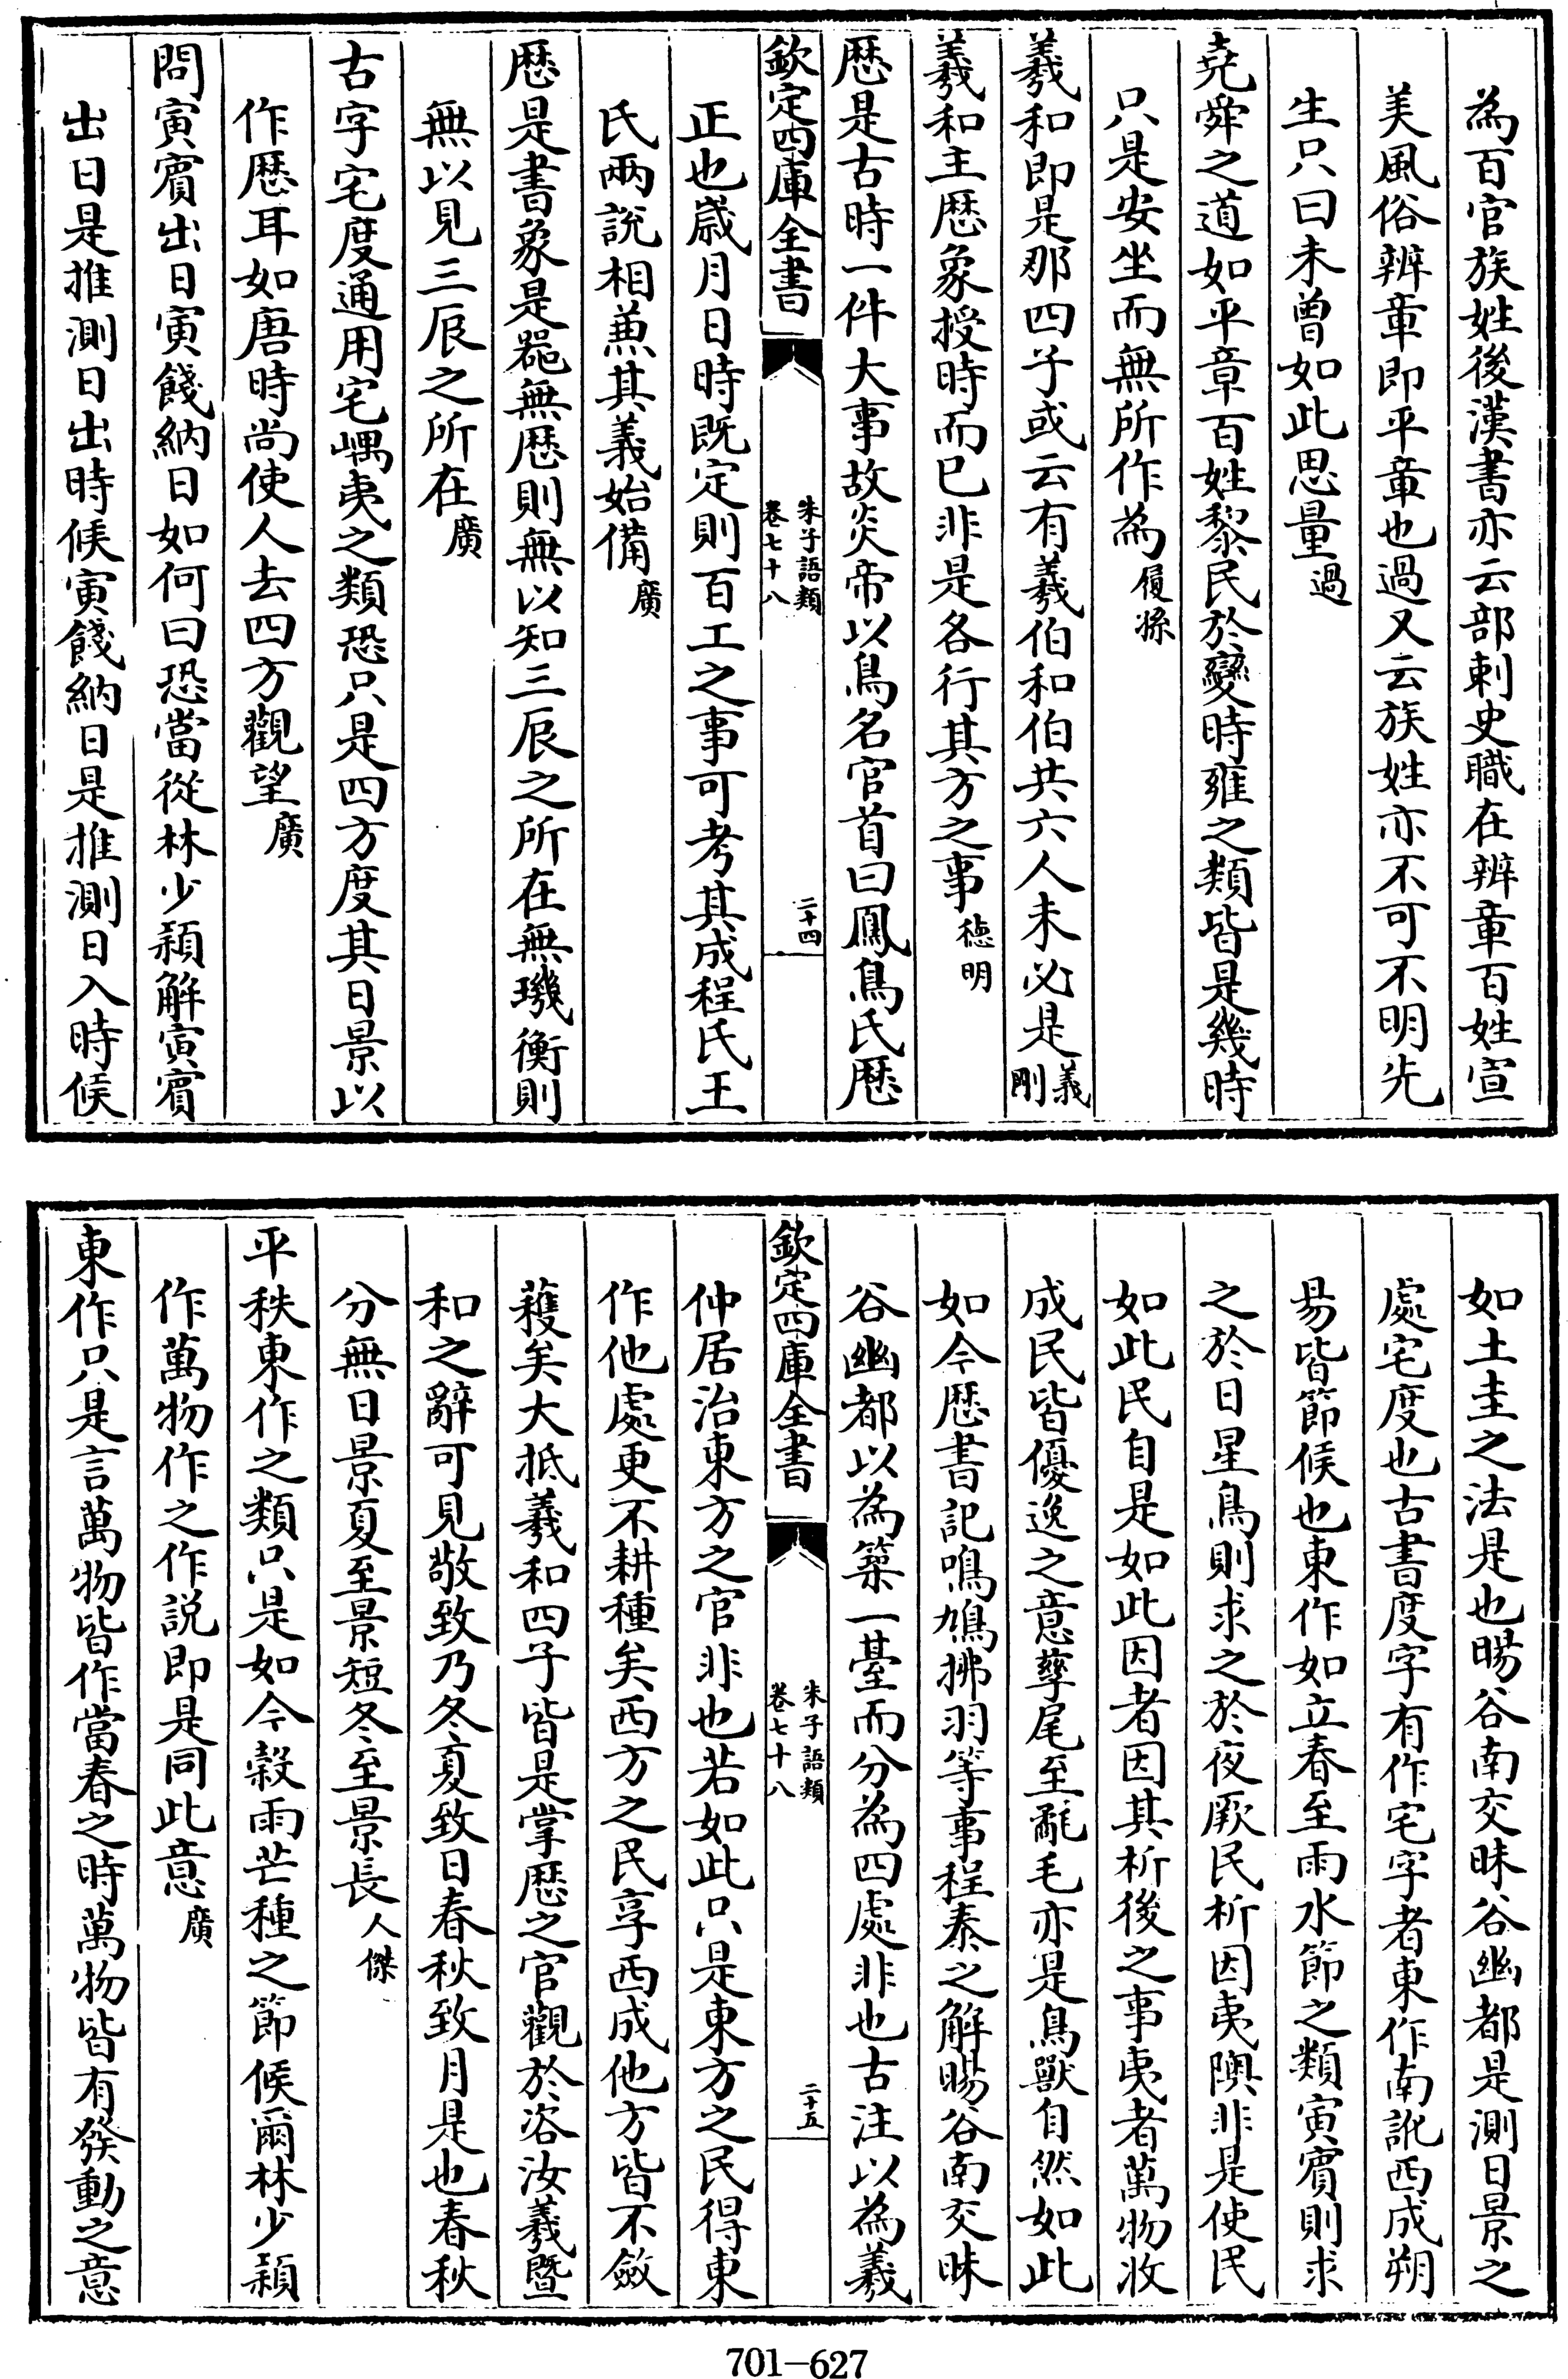 為百官族姓後漢書亦云部刺史職在辨章百姓宣
美風俗辨章即平章也過又云族姓亦不可不明先
生只曰未曾如此思量過
堯舜之道如平章百姓黎民於變時雍之類皆是幾時
只是安坐而無所作為履孫
羲和即是那四子或云有羲伯和伯共六人未必是義剛
羲和主歴象授時而已非是各行其方之事徳明
歴是古時一件大事故炎帝以鳥名官首曰鳳鳥氏歴
欽定四庫全書
朱子語類
卷七十八
二十四
正也嵗月日時既定則百工之事可考其成程氏王
氏兩說相兼其義始備廣
歴是書象是器無歴則無以知三辰之所在無璣衡則
無以見三辰之所在廣
古字宅度通用宅嵎夷之類恐只是四方度其日景以
作歴耳如唐時尚使人去四方觀望廣
問寅賓出日寅餞納日如何曰恐當從林少穎解寅賓
出日是推測日出時候寅餞納日是推測日入時候
如土圭之法是也暘谷南交昧谷幽都是測日景之
處宅度也古書度字有作宅字者東作南訛西成朔
易皆節候也東作如立春至雨水節之類寅賓則求
之於日星鳥則求之於夜厥民析因夷隩非是使民
如此民自是如此因者因其析後之事夷者萬物收
成民皆優逸之意孳尾至氄毛亦是鳥獸自然如此
如今歴書記鳴鳩拂羽等事程泰之解暘谷南交昧
谷幽都以為築一臺而分為四處非也古注以為羲
欽定四庫全書
朱子語類
卷七十八
二十五
仲居治東方之官非也若如此只是東方之民得東
作他處更不耕種矣西方之民享西成他方皆不斂
穫矣大抵羲和四子皆是掌歴之官觀於咨汝羲暨
和之辭可見敬致乃冬夏致日春秋致月是也春秋
分無日景夏至景短冬至景長人傑
平秩東作之類只是如今穀雨芒種之節候爾林少穎
作萬物作之作説即是同此意廣
東作只是言萬物皆作當春之時萬物皆有發動之意
701-627